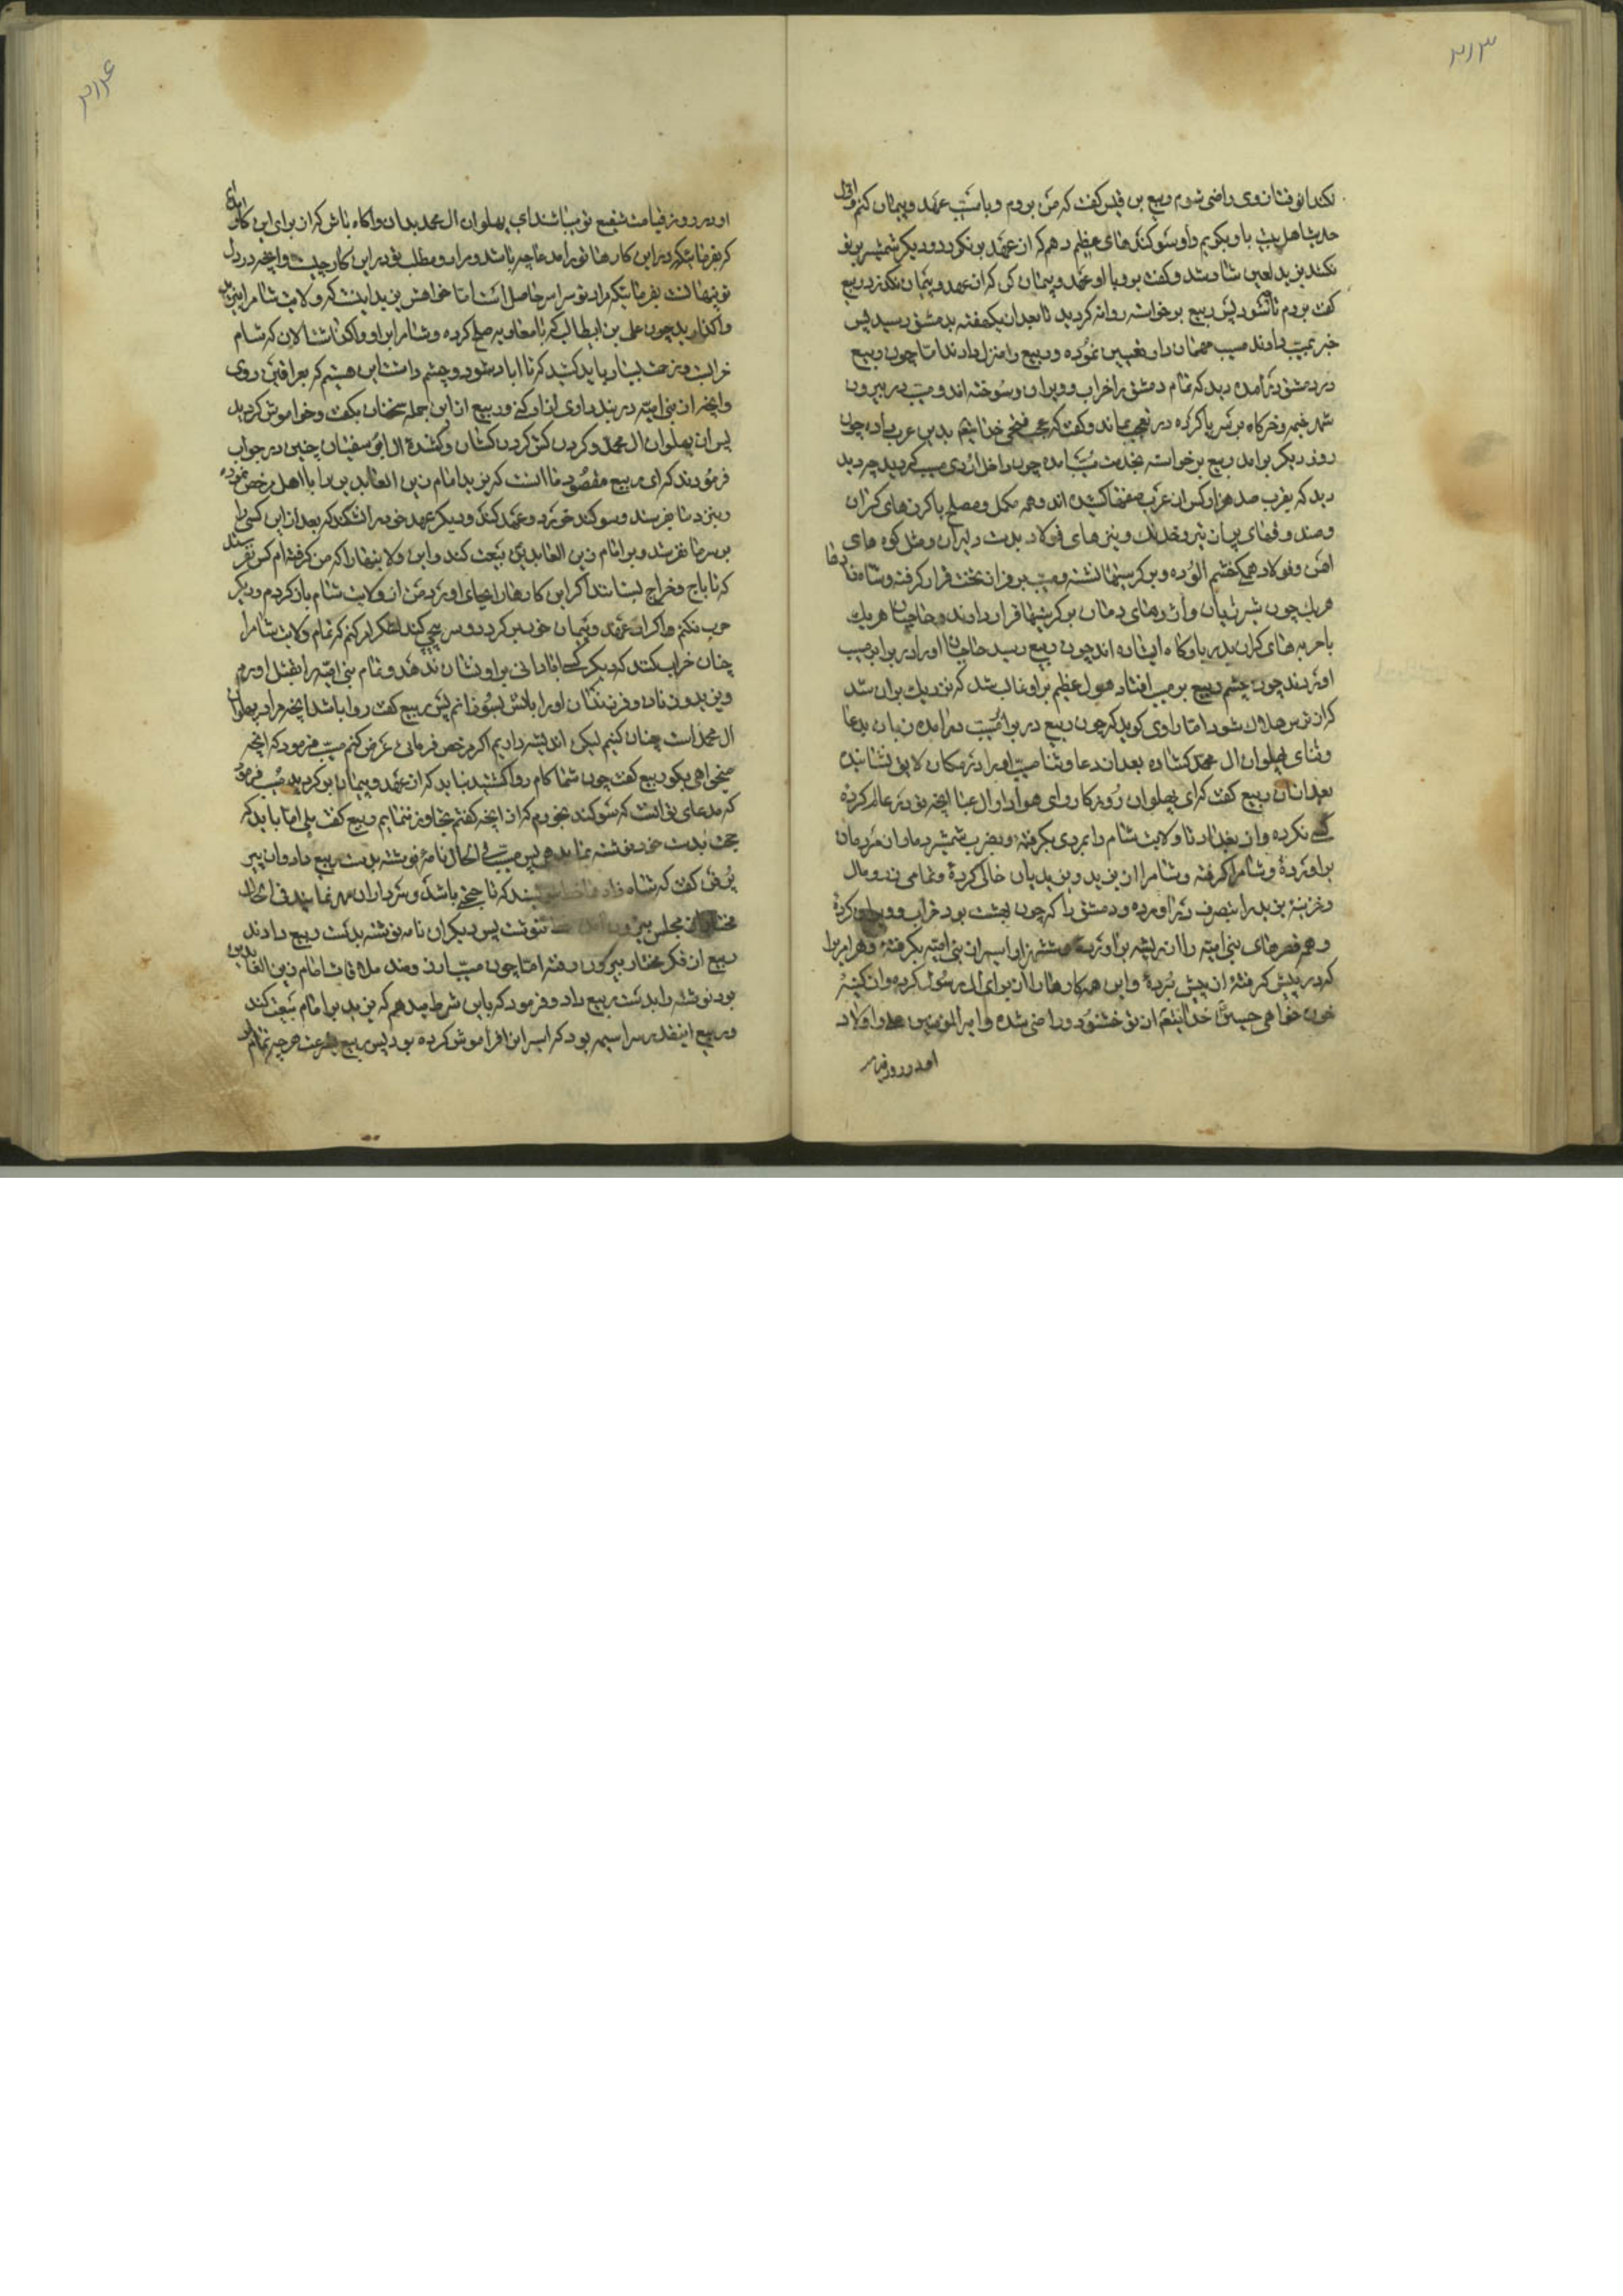 ۳۱۳
نکند از وقتا زوی راضی شوم ربیع بن قیس کفت که من بروم و با مسیب عهد و پیمان کنم و اول
حدیث اهل بیت با و بکویم و او سوکندهای عظیم دهم که از عهد بر نکردد و دیکر شمشیر بر تو
نکند یزید لعین شاد شد و کفت برو با او عهد و پیمان کن که از عهد و پیمان نکذرد ربیع
کفت بروم تا شود پس ربیع برخواسته روانه کردید تا بعد از یکهفته بدمشق رسید پس
خبر بمسیب دادند مسیب مهماندار تعیین نموده و ربیع را منزل دادند اما چون ربیع
در دمشق درآمده دید که تمام دمشق را خراب و ویران و سوخته اند و مسیب در بیرون
شهر خیمه و خرکاه بر سر پا کرده در تعجب بماند و کفت که عجب فتحی خدایتعم بدین عرب داده چون
روز دیکر برآمد ربیع برخواسته بخدمت مسیب آمده چون داخل اردوی مسیب کردید چه دید
دید که بقرب صد هزار کس از عرب صفها کشیده اند و همه مکمل و مصلح با کرزهای کران
و صندوقهای پر از تیر خدنک و نیزهای فولاد بدست دلیران و مثل کوه های
آهن و فولاد همی کخشم الوده و بر کرسیها نشسته و مسیب بر فراز تخت قرار کرفته و شاهزادها
هریک چون شیر ژیان و اژدهای دمان بر کرسیها قرار دارند و حاجبان هریک
با حربه های کران بدر بارکاه ایستاده اند چون ربیع رسید حاجبان او را در برابر مسیب
اوردند چون چشم ربیع بر مسیب افتاد هول عظیم بر او غالب شد که نزدیک بران شد
که از ترس هلاک شود اما راوی کوید که چون ربیع در برابر مسیب درآمده زبان بدعا
و ثنای پهلوان ال محمد کشاده بعد از دعا و ثنا مسیب او را در مکان لایق نشانیده
بعد ازان ربیع کفت که ای پهلوان روزکار و ای هوادار ال عبا انچه تو در عالم کرده
کسی نکرده و از بغداد تا ولایت شام را بمردی بکرفته و بضرب شمشیر دمار از مردمان
براورده و شام را کرفته و شام را از یزید و یزیدیان خالی کرده و تمامی زر و مال
و خزینه یزید را بتصرف دراورده و دمشق را که چون بهشت بود خراب و ویران کرده
و هم قصرهای بنی امیه را از ریشه براورده و شهزاد اسیران بنی امیه بکرفته و هر امیرا
که در پیش کرفته از پیش برده و این همه کارها را از برای ال رسول کرده و از کینه
خون خواهی حسین خدایتعم از تو خشنود و راضی شده و امیرالمومنین و اولاد
امد در روز قیامت
۳۱۴
او در روز قیامت شفیع تو باشند ای پهلوان ال محمد بدان و آکاه باش که از برای این کار آمده ام
که بفرمائیکه در این کارها تو را مدعا چه باشد و مراد و مطلب تو در این کار چیست و انچه در دل
تو پنهانست بفرمائیکه مراد تو سراسر حاصل است اما خواهش یزید اینست که ولایت شام را بیزید
واکذارید چون علی بن ابیطالب که با معاویه صلح کرده و شام را براو واکذاشت الان که شام
خرابست و زحمت بسیار باید کشید که تا اباد شود و چشم داشت این هستیم که بعراقین روی
و انچه از بنی امیه در بند داری ازاد کنی و ربیع از این جمله سخنان بکفت و خواموش کردید
پس ان پهلوان ال محمد و کردن کش کردن کشان و کشنده ال ابو سفیان چنین در جواب
فرمودند که ای ربیع مقصود ما انست که یزید امام زین العابدین را با اهل مرخص نموده
و بنزد ما بفرستد و سوکند خورد و عهد کند و دیکر عهد خود را نشکند که بعد از این کسی را
بر سر ما نفرستد و بر امام زین العابدین بیعت کند و این ولایتها را که من کرفته ام کس نفرستد
که تا باج و خراج بستانند اکر این کارها را بجای اورد من از ولایت شام باز کردم و دیکر
حرب نکنم و اکر از عهد و پیمان خود بر کردد و سر پیچی کند لشکر امر کنم که تمام ولایت شام را
چنان خراب کنند که دیکر کسی ابادانی براو نشان ندهد و تمام بنی امیه را بقتل اورم
و یزید و زنان و فرزندان او را باتش بسوزانم پس ربیع کفت روا باشد انچه مراد پهلوان
ال محمد است چنان کنیم لیکن اندیشه داریم اکر مرخص فرمائی عرض کنم مسیب فرمود که انچه
میخواهی بکو ربیع کفت چون شما کام روا کشتید نباید که از عهد و پیمان بر کردید مسیب فرمود
که مدعای تو انست که سوکند بخورم که از انچه کفتم تجاوز ننمایم ربیع کفت بلی اما باید که
حجت بدست خود نوشته بما بدهی پس مسیب فی الحال نامهٔ نوشته بدست ربیع داد و ان پیر
پر فن کفت که شاه زادها خط بنویسند که تا حجتی باشد و سرداران مهر نمایند فی الحال
مختار از مجلس بیرون آمد خط ننوشت پس دیکران نامه نوشته بدست ربیع دادند
ربیع از فکر مختار بیرون رفته اما چون مسیب ارزومند ملاقات امام زین العابدین
بود نوشته را بدست ربیع داد و فرمود که باین شرط میدهم که یزید بر امام بیعت کند
و ربیع اینقدر سراسیمه بود که اسیران را فراموش کرده بود پس ربیع بسرعت هرچه تمامتر